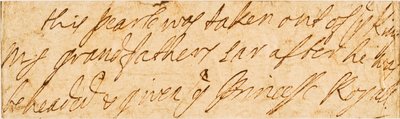 this pearle was taken out of ye King
My grandfathers ear after he was
beheaded & given ye Princess Royall